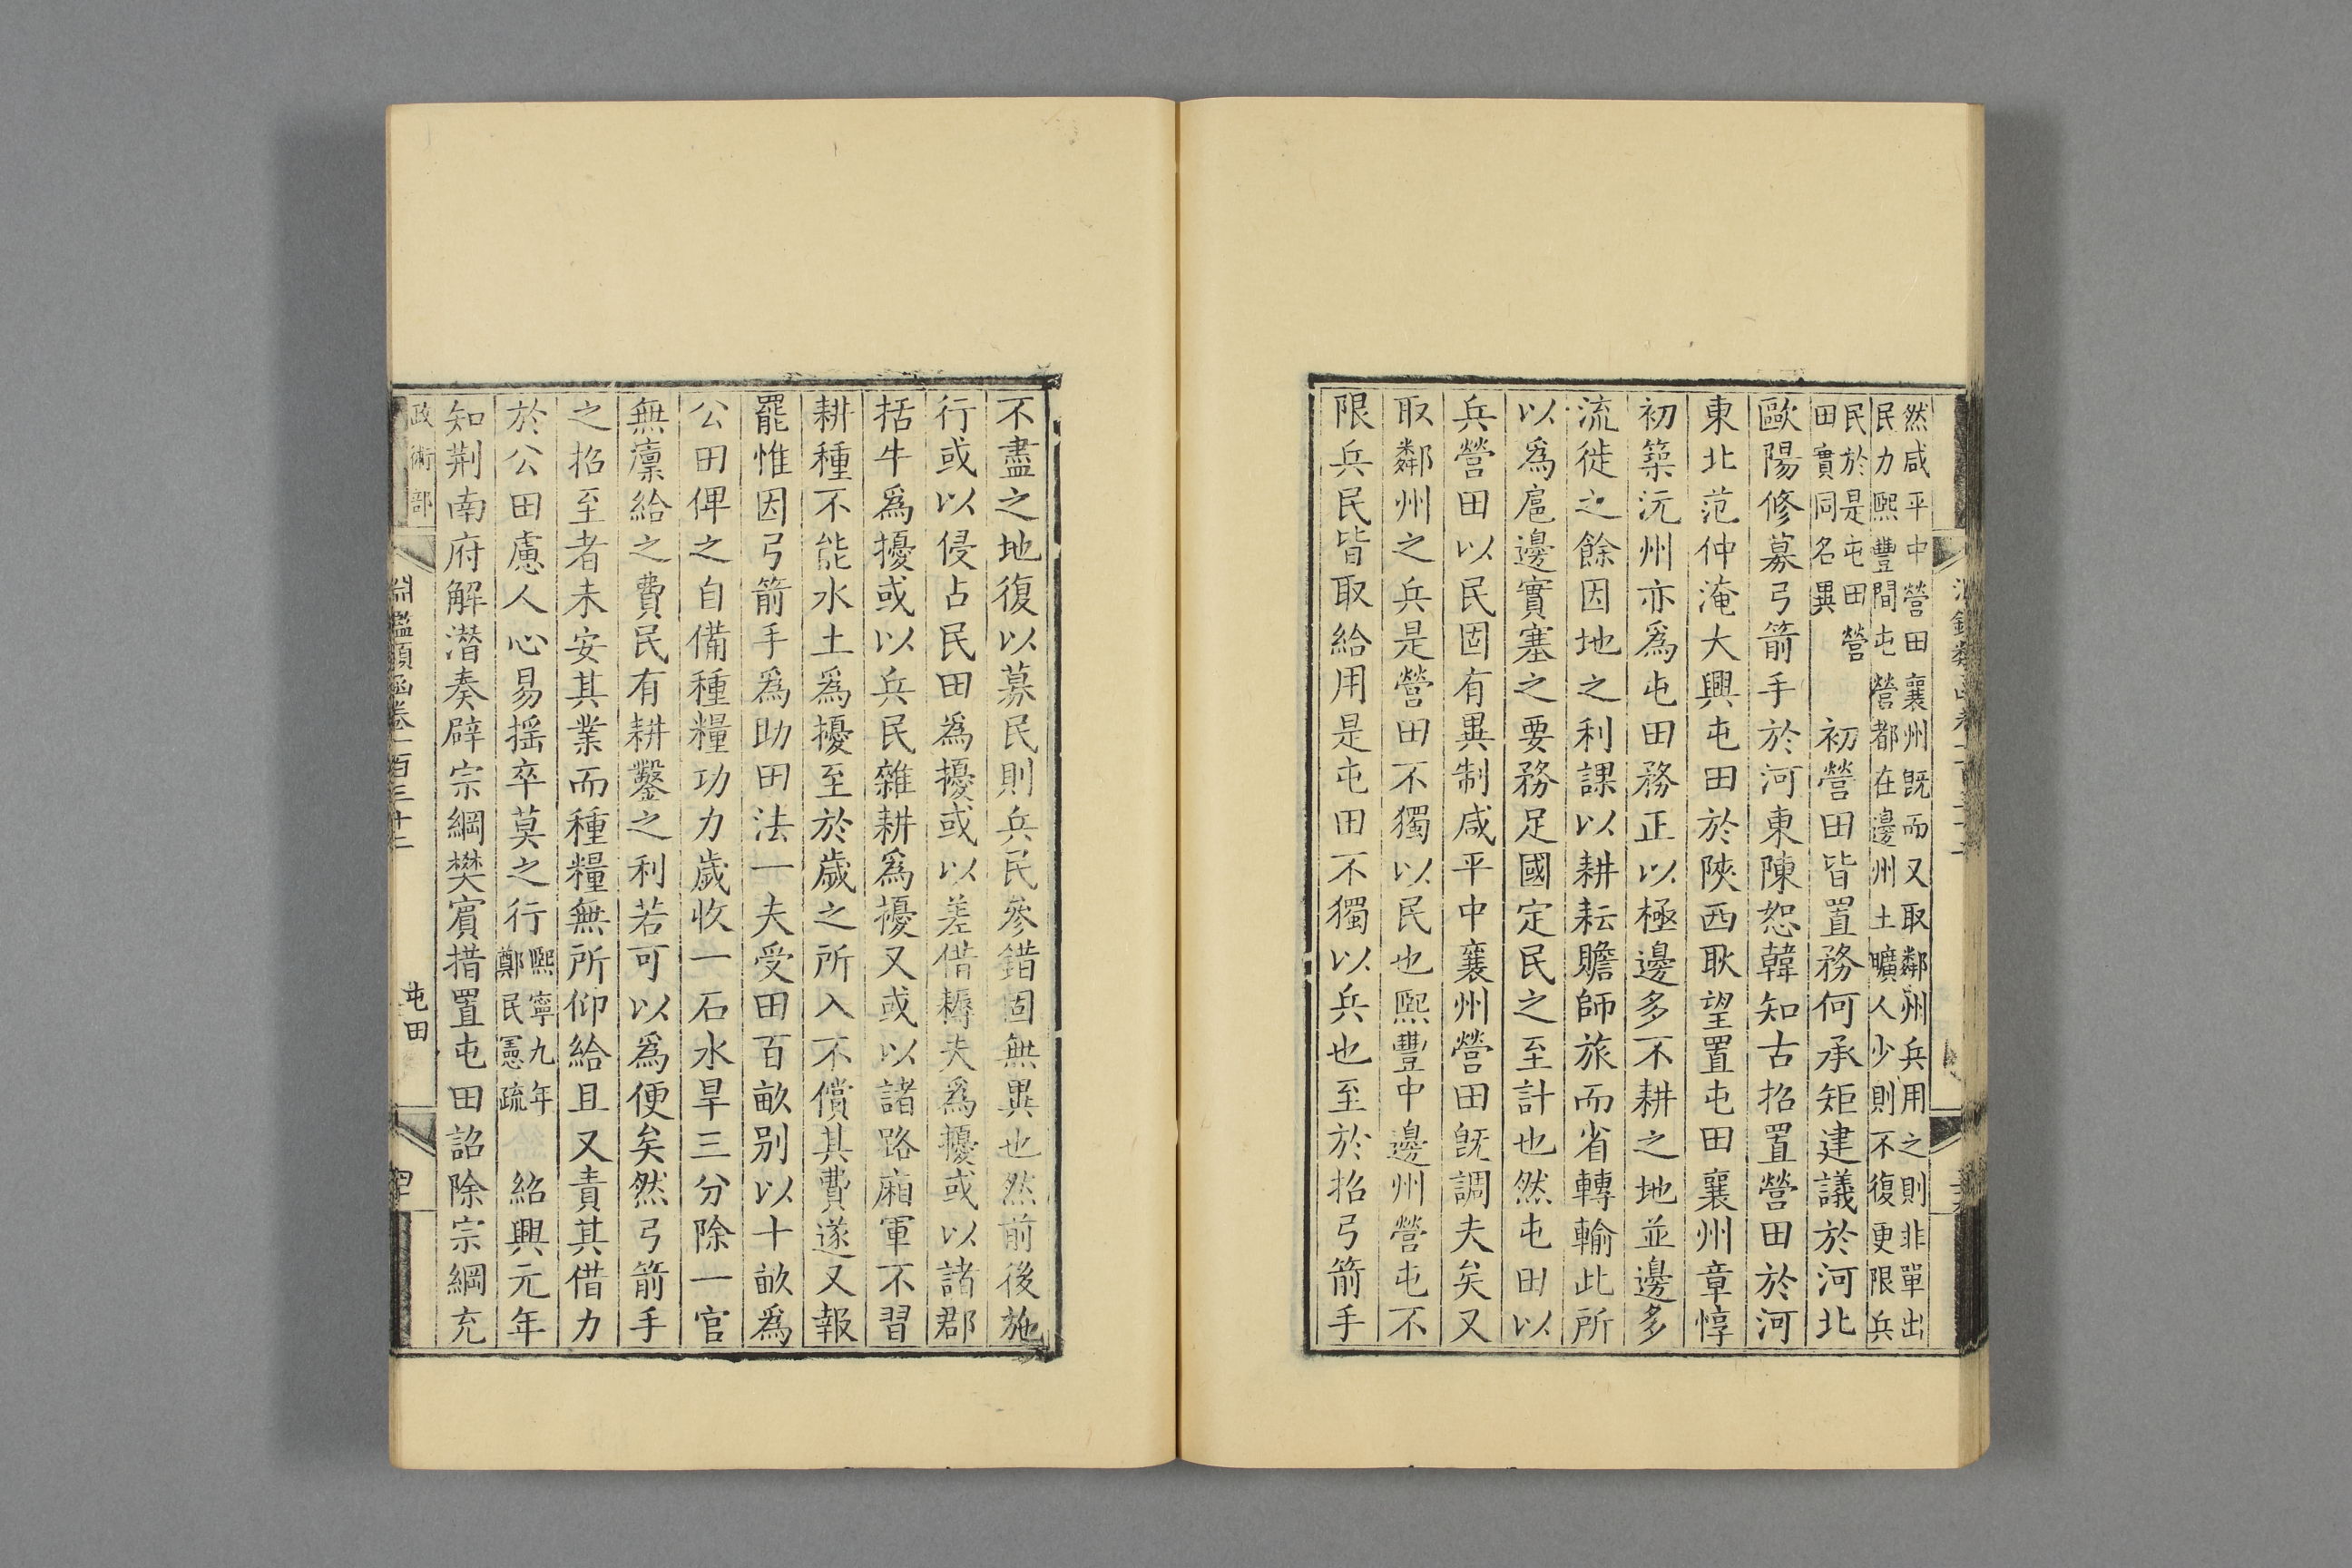 然咸平中營田襄州既而又取鄰州兵用之則非單出
民力熙豐間屯營都在邊州土曠人少則不復更限兵
民於是屯田營
田實同名異
初營田皆置務何承矩建議於河北
歐陽修募弓箭手於河東陳恕韓知古招置營田於河
東北范仲淹大興屯田於陝西耿望置屯田襄州章惇
初築沅州亦爲屯田務正以極邊多不耕之地並邊多
流徙之餘因地之利課以耕耘贍師旅而省轉輸此所
以爲扈邊實塞之要務足國定民之至計也然屯田以
兵營田以民固有異制咸平中襄州營田旣調夫矣又
取鄰州之兵是營田不獨以民也熙豐中邊州營屯不
限兵民皆取給用是屯田不獨以兵也至於招弓箭手
不盡之地復以募民則兵民參錯固無異也然前後施
行或以侵占民田爲擾或以差借耨夫爲擾或以諸郡
括牛爲擾或以兵民雜耕爲擾又或以諸路廂軍不習
耕種不能水土爲擾至於歲之所入不償其費遂又報
罷惟因弓箭手爲助田法一夫受田百畝別以十畝爲
公田俾之自備種糧功力歲收一石水旱三分除一官
無廩給之費民有耕鑿之利若可以爲便矣然弓箭手
之招至者未安其業而種糧無所仰給且又責其借力
於公田慮人心易搖卒莫之行
熙寧九年
鄭民憲疏
紹興元年
知荆南府解潛奏辟宗綱樊賓措置屯田詔除宗綱充
政術部
淵鑑類函卷一百三十二
屯田